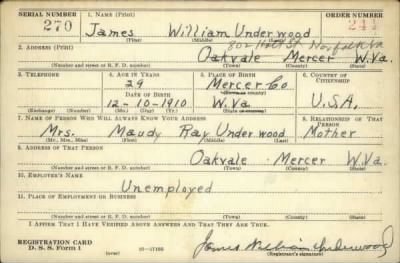 SERIAL NUMBER 1. NAME (Print) ORDER NUMBER
270 James William Underwood 241
(First) (Middle) (Last)
2. ADDRESS (Print)
Oakvale Mercer W.Va.
(Number and street or R. F. D. number) (Town) (County) (State)
3. TELEPHONE 4. AGE IN YEARS 5. PLACE OF BIRTH 6. COUNTRY OF CITIZENSHIP
29 Mercer Co.
DATE OF BIRTH (Town or county)
12-10-1910 W.Va U.S.A.
(Exchange) (Number) (Mo.) (Day) (Yr.) (State or country)
7. NAME OF PERSON WHO WILL ALWAYS KNOW YOUR ADDRESS 8. RELATIONSHIP OF THAT PERSON
Mrs. Maudy Ray Underwood Mother
(Mr., Mrs., Miss) (First) (Middle) (Last)
9. ADDRESS OF THAT PERSON
Oakvale Mercer W.Va.
(Number and street or R. F. D. number) (Town) (County) (State)
10. EMPLOYER'S NAME
Unemployed
11. PLACE OF EMPLOYMENT OR BUSINESS
(Number and street or R. F. D. number) (Town) (County) (State)
I AFFIRM THAT I HAVE VERIFIED ABOVE ANSWERS AND THAT THEY ARE TRUE.
REGISTRATION CARD
D. S. S. Form 1 (over) 16-17105 James William Underwood
(Registrant's signature)